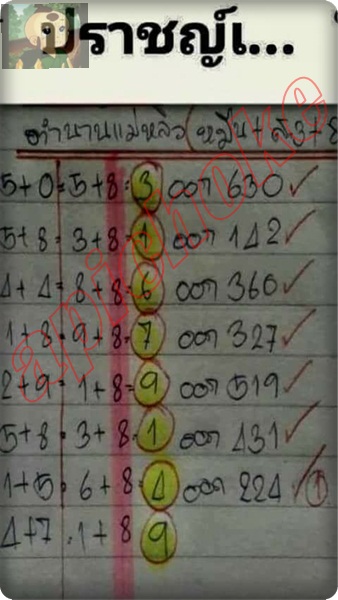 ปราชญ์เ...
ตำนานแม่หลิว (หมื่น+สิ3+8
5+0=5+8=3 ออก 630 ✓
5+8=3+8=1 ออก 142 ✓
4+4=8+8=6 ออก 360 ✓
1+8=9+8=7 ออก 327 ✓
2+9=1+8=9 ออก 519 ✓
5+8=3+8=1 ออก 431 ✓
1+5=6+8=4 ออก 224 ✓ 1
4+7=1+8 9
apichoke